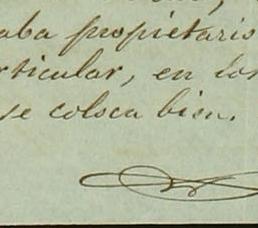 aba propietario
rticular, en los
se coloca bien.